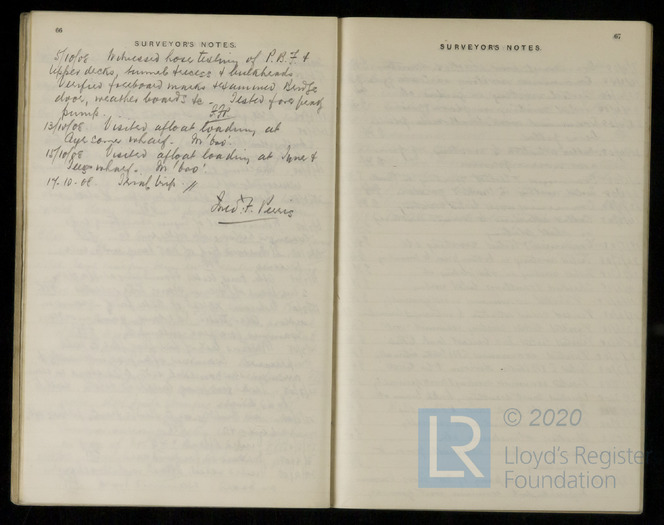 66
SURVEYOR'S NOTES.
5/10/08 Witnessed hose testing of P.B.F. &
upper decks, tunnel recess & bulkheads.
Verified freeboard marks & examined Bridge
door, weather boards &c. Tested fore peak
pump.
13/10/08 Visited afloat loading at
wharf. M'bro.
15/10/08 Visited afloat loading at &
Tees wharf. M'bro'.
17-10-08 Trial trip.
Fred. F. Perris
67
SURVEYOR'S NOTES.
© 2020
LR
Lloyd's Register
Foundation